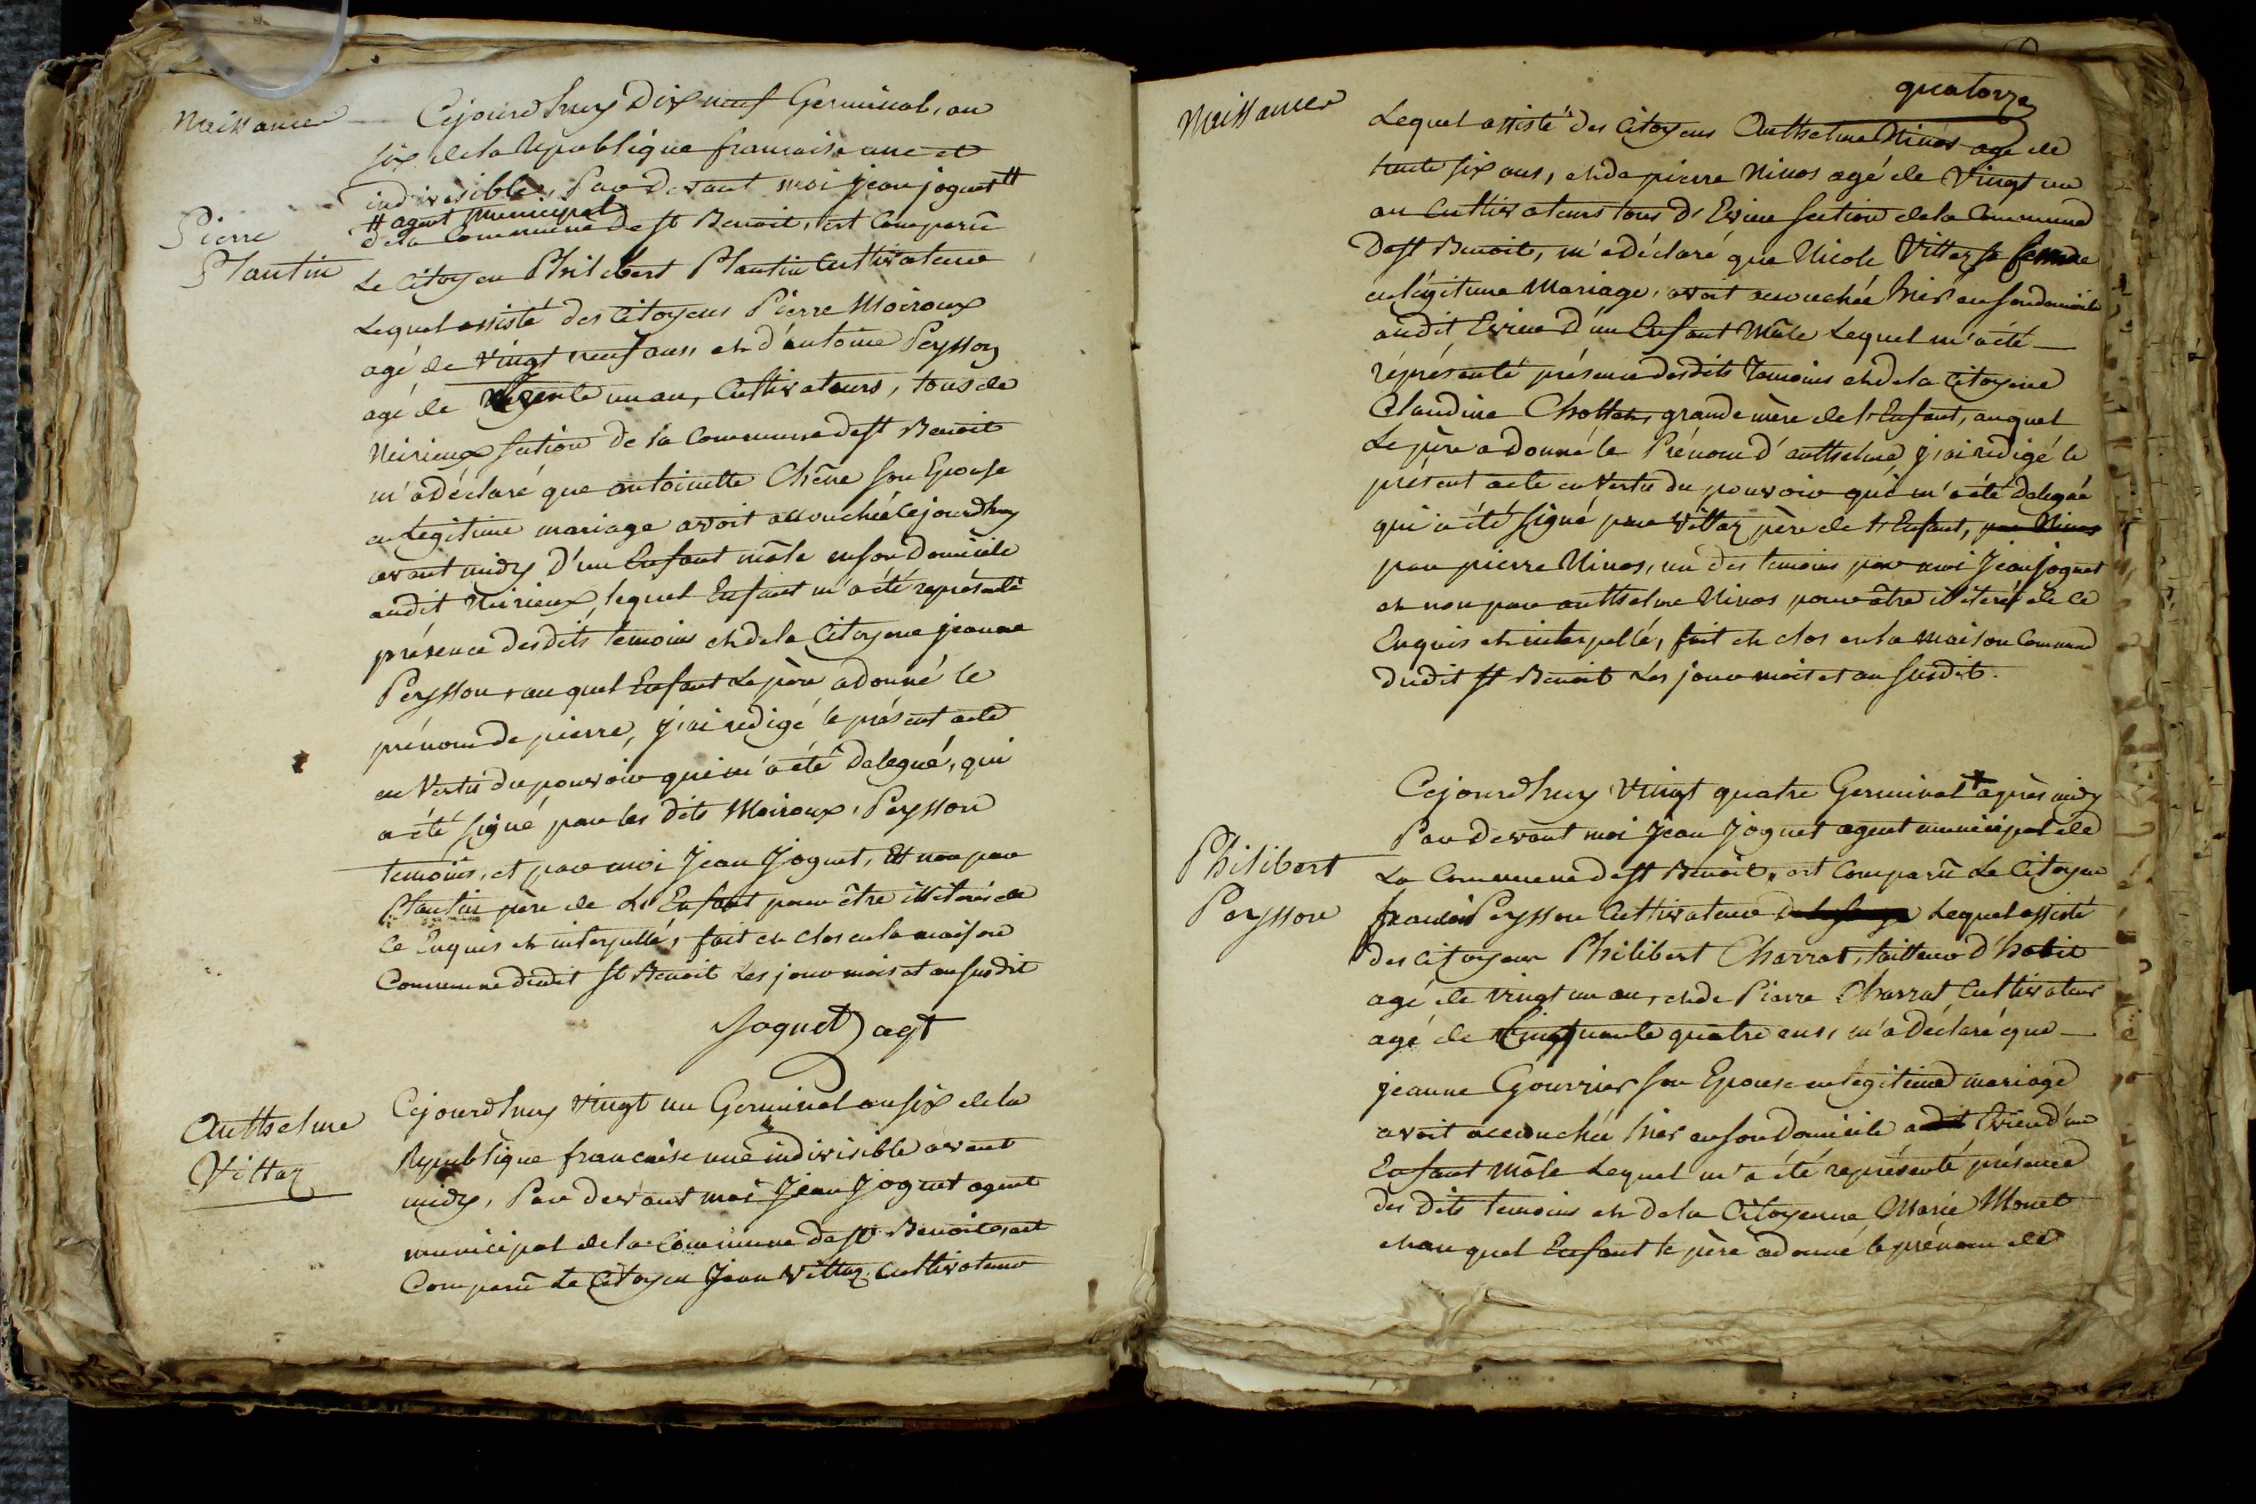 Naissances
Cejourdhuy Dix neuf Germinal, an
six de la République francaise une et
indivisible, Par devant moi jean joguet #
# agent Municipal
de la Commune de st Benoit, est Comparû
Pierre
Plantin
Le Citoyen Philibert Plantin Cultivateur
Lequel assisté des Citoyens Pierre Moiroux
agé de vingt neuf ans, et d'antoine Peysson
agé de trente un an, Cultivateurs, tous de
Nirieux section de la Commune de st Benoit
m'a déclaré que antoinette Chêne son Epouse
en légitime mariage avoit accouchée cejourdhuy
avant midy d'un Enfant mâle en son domicile
audit Nirieux, lequel Enfant m'a été représenté
présence desdits temoins et de la Citoyene jeanne
Peysson, auquel Enfant Le père a donné le
prénom de pierre, j'ai redigé le présent acte
en Vertu du pouvoir qui m'a été délegué, qui
a été signé par les dits Moiroux, Peysson
temoins, et par moi Jean Joguet, Et non par
Plantin père de L'Enfant pour être illiteré de
Ce Enquis et interpellé, fait et clos en la maison
Commune dudit st Benoit Les jour mois et an susdit
Joguet agt
Anthelme
Vittaz
Cejourdhuy vingt un Germinal an six de la
République francaise une indivisible avant
midy, Par devant moi Jean Joguet agent
municipal de la Commune de st Benoit, est
Comparû Le Citoyen Jean Vittaz, Cultivateur
quatorze
Naissances
Lequel assisté des Citoyens Anthelme Ninos agé de
trente six ans, et de pierre Ninos agé de Vingt un
an Cultivateurs tous d'Evieu section de la Commune
de st Benoit, m'a déclaré que Nicole Vittaz sa femme
en légitime Mariage, avoit accouchée hier en son domicile
audit Evieu D'un Enfant Mâle Lequel m'a été
réprésenté présence desdits temoins et de la Citoyene
Claudine grande mère de l'Enfant, auquel
Le père a donné le Prénom d'anthelme, j'ai redigé le
présent acte en Vertu du pouvoir qui m'a été delegué
qui a été signé par Vittaz père de l'Enfant, par Ninos
par pierre Ninos, un des temoins par moi Jean Joguet
et non par anthelme Ninos pour être illiteré de Ce
Enquis et interpellé, fait et clos en la maison Commune
dudit st Benoit Les jour mois et an susdit.
Cejourdhuy Vingt quatre Germinal après midy
Par devant moi Jean Joguet agent municipal de
Philibert
Peysson
La Commune de st Benoit, est Comparû Le Citoyen
francois Peysson Cultivateur Lequel assisté
des Citoyens Philibert Charrat, tailleur d'habit
agé de vingt un an, et de Pierre Charrat Cultivateur
agé de Cinquante quatre ans, m'a déclaré que
jeanne Gourrier son Epouse en légitime mariage
avoit accouchée hier en son Domicile Evieu d'un
Enfant Mâle Lequel m'a été représenté présence
des dits temoins et de la Citoyenne Marie Monet
et auquel Enfant le père a donné le prénom de